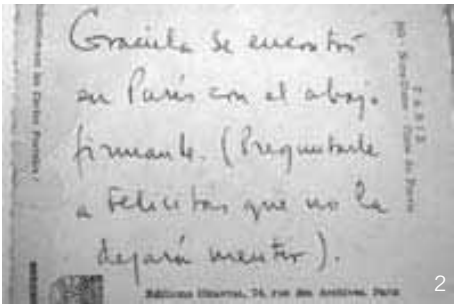 Graciela se encontró
en París con el abajo
firmante. (Preguntarle
a Felicitas que no la
dejará mentir).
PARIS
Éditions 74, rue des Archives, Paris
2